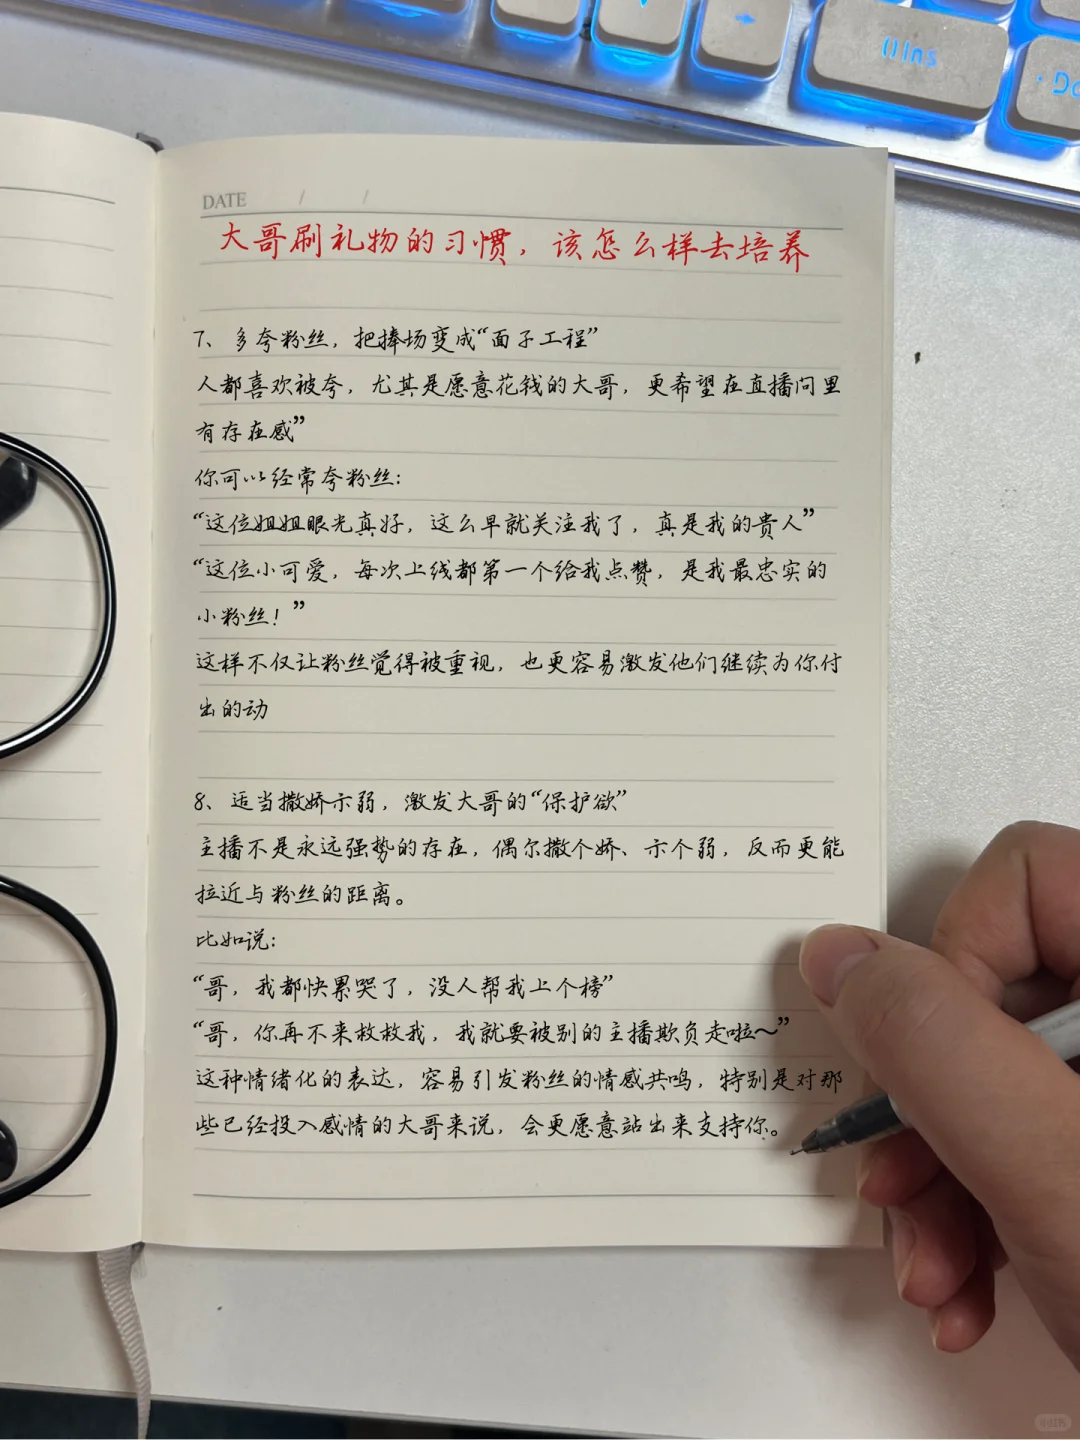 Ins
DATE / /
大哥刷礼物的习惯，该怎么样去培养
7、多夸粉丝，把捧场变成“面子工程”
人都喜欢被夸，尤其是愿意花钱的大哥，更希望在直播间里
有存在感”
你可以经常夸粉丝：
“这位姐姐眼光真好，这么早就关注我了，真是我的贵人”
“这位小可爱，每次上线都第一个给我点赞，是我最忠实的
小粉丝！”
这样不仅让粉丝觉得被重视，也更容易激发他们继续为你付
出的动
8、适当撒娇示弱，激发大哥的“保护欲”
主播不是永远强势的存在，偶尔撒个娇、示个弱，反而更能
拉近与粉丝的距离。
比如说：
“哥，我都快累哭了，没人帮我上个榜”
“哥，你再不来救救我，我就要被别的主播欺负走啦～”
这种情绪化的表达，容易引发粉丝的情感共鸣，特别是对那
些已经投入感情的大哥来说，会更愿意站出来支持你。